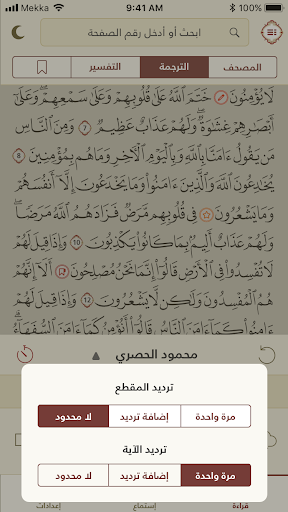 Mekka 9:41 AM 100%
ابحث أو أدخل رقم الصفحة
المصحف الترجمة التفسير
لَا يُؤْمِنُونَ خَتَمَ اللَّهُ عَلَىٰ قُلُوبِهِمْ وَعَلَىٰ سَمْعِهِمْ ۖ وَعَلَىٰ
أَبْصَارِهِمْ غِشَاوَةٌ ۖ وَلَهُمْ عَذَابٌ عَظِيمٌ 7 وَمِنَ النَّاسِ
مَن يَقُولُ ءَامَنَّا بِاللَّهِ وَبِالْيَوْمِ الْآخِرِ وَمَا هُم بِمُؤْمِنِينَ 8
يُخَادِعُونَ اللَّهَ وَالَّذِينَ ءَامَنُوا وَمَا يَخْدَعُونَ إِلَّا أَنفُسَهُمْ
وَمَا يَشْعُرُونَ فِي قُلُوبِهِم مَّرَضٌ فَزَادَهُمُ اللَّهُ مَرَضًا ۖ
وَلَهُمْ عَذَابٌ أَلِيمٌ بِمَا كَانُوا يَكْذِبُونَ 10 وَإِذَا قِيلَ لَهُمْ
لَا تُفْسِدُوا فِي الْأَرْضِ قَالُوا إِنَّمَا نَحْنُ مُصْلِحُونَ أَلَا إِنَّهُمْ
هُمُ الْمُفْسِدُونَ وَلَٰكِن لَّا يَشْعُرُونَ 12 وَإِذَا قِيلَ لَهُمْ
ءَامِنُوا كَمَا ءَامَنَ النَّاسُ قَالُوا أَنُؤْمِنُ كَمَا ءَامَنَ السُّفَهَاءُ ۗ
محمود الحصري
ترديد المقطع
مرة واحدة إضافة ترديد لا محدود
ترديد الآية
مرة واحدة إضافة ترديد لا محدود
قراءة إستماع إعدادات